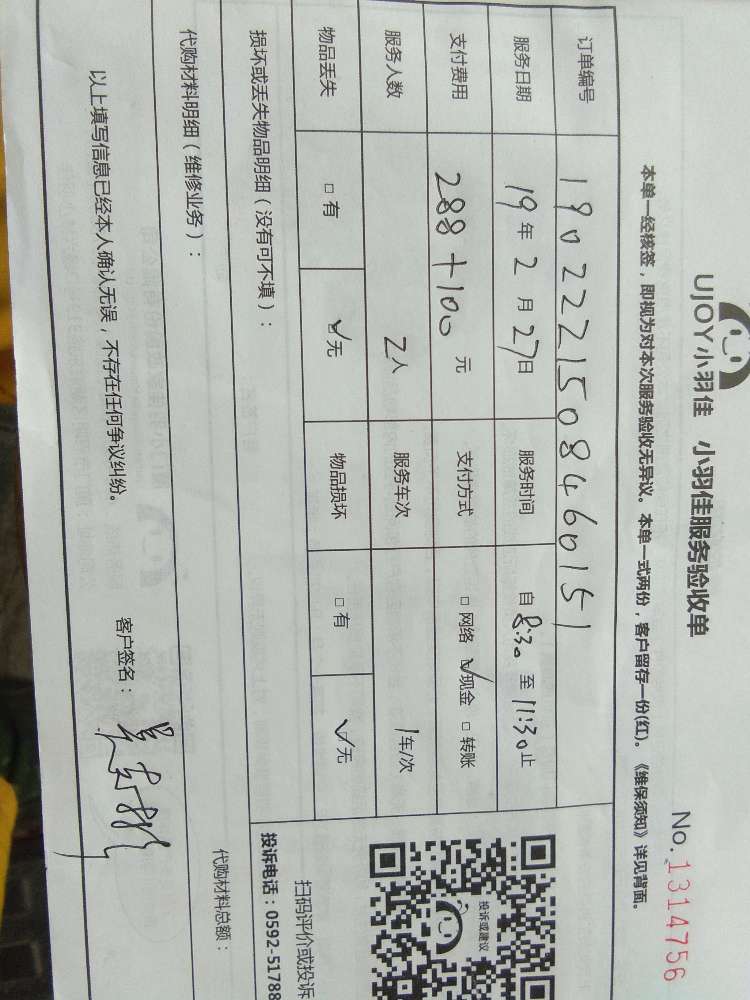 UJOY小羽佳 小羽佳服务验收单
No.1314756
本单一经核签，即视为对本次服务验收无异议。本单一式两份，客户留存一份(红)。《维保须知》详见背面。
订单编号 1902221508460151
服务日期 19年2月27日 服务时间 自8:30至11:30止
支付费用 288+100元 支付方式 □网络 ☑现金 □转账
服务人数 2人 服务车次 1车/次
物品丢失 □有 ☑无 物品损坏 □有 ☑无
投诉或建议
扫码评价或投诉
投诉电话：0592-51788
损坏或丢失物品明细（没有可不填）：
代购材料明细（维修业务）：
代购材料总额：
以上填写信息已经本人确认无误，不存在任何争议纠纷。
客户签名：